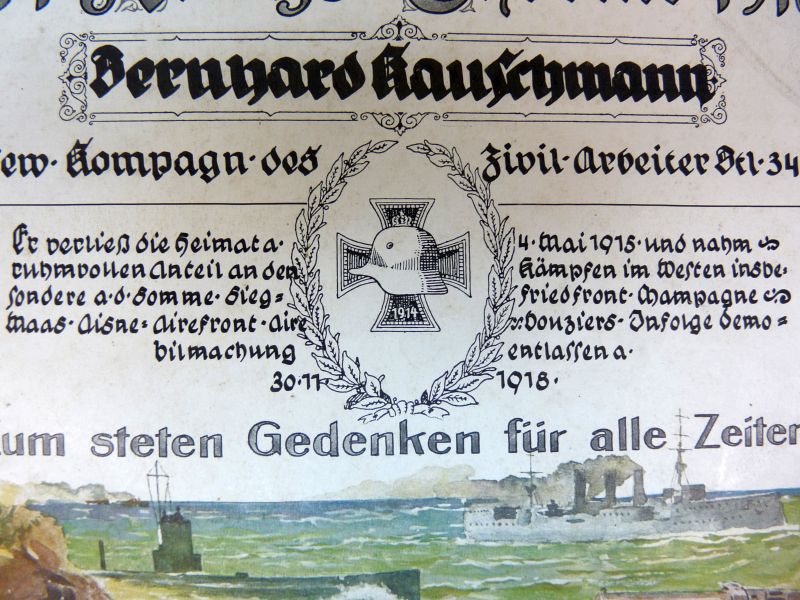 Bernhard Kauschmann
ew. Kompagn. des Zivil. Arbeiter Btl. 34
Er verließ die Heimat a. 4. Mai 1915. und nahm
ruhmvollen Anteil an den Kämpfen im Westen insbe-
sondere a.d. Somme. Sieg= friedfront. Champagne
Maas. Aisne= Airefront. Aire Vouziers. Infolge Demo=
bilmachung entlassen a.
30.11 1918.
1914
zum steten Gedenken für alle Zeiten